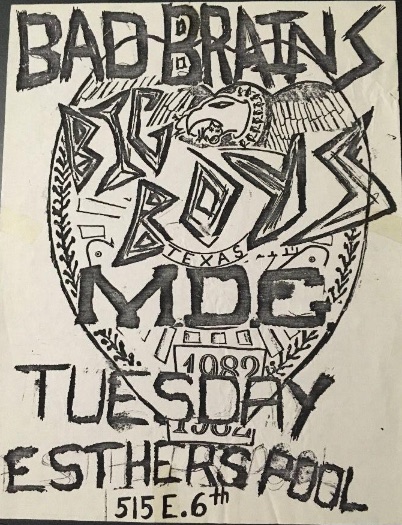 BAD BRAINS
BIG
BOYS
TEXAS
M.D.C
1982
TUESDAY
1982
ESTHERS POOL
515 E. 6th